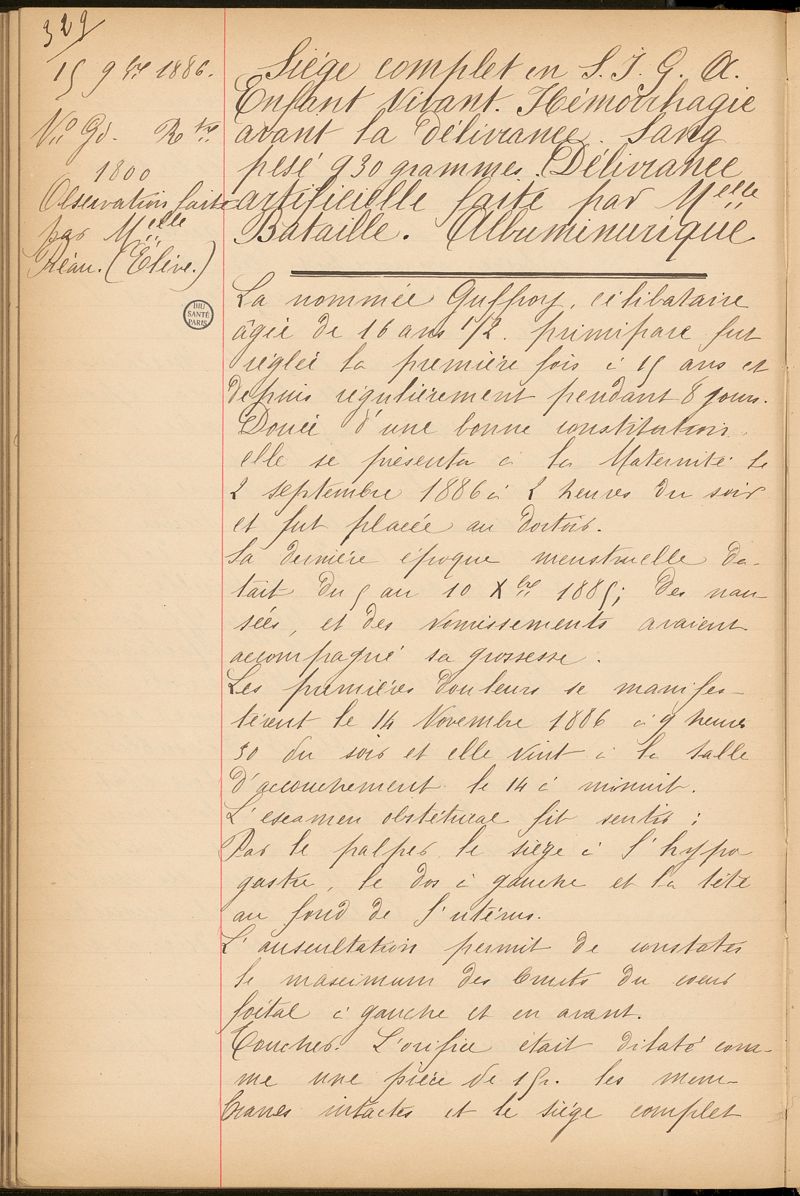 329
15 9bre 1886.
No Gé. Rtre
1800
Observation faite
par Melle
Préau. (Élève.)
BIU
SANTÉ
PARIS
Siége complet en S. I. G. A.
Enfant vivant. Hémorrhagie
avant la délivrance. Sang
pesé 930 grammes. Délivrance
artificielle faite par Melle
Bataille. Albuminurique
La nommée Guffroy, célibataire
âgée de 16 ans 1/2. primipare fut
réglée la première fois à 15 ans et
depuis régulièrement pendant 8 jours.
Douée d'une bonne constitution
elle se présenta à la Maternité le
2 septembre 1886 à 2 heures du soir
et fut placée au dortoir.
Sa dernière époque menstruelle da-
tait du 5 au 10 Xbre 1885; des nau-
sées, et des vomissements avaient
accompagné sa grossesse.
Les premières douleurs se manifes-
tèrent le 14 Novembre 1886 à 9 heures
30 du soir et elle vint à la salle
d'accouchement le 14 à minuit.
L'examen obstétrical fit sentir :
Par le palper le siége à l'hypo-
gastre, le dos à gauche et la tête
au fond de l'utérus.
L'auscultation permit de constater
le maximum des bruits du coeur
foetal à gauche et en avant.
Toucher. L'orifice était dilaté com-
me une pièce de 1 fr. les mem-
branes intactes et le siége complet